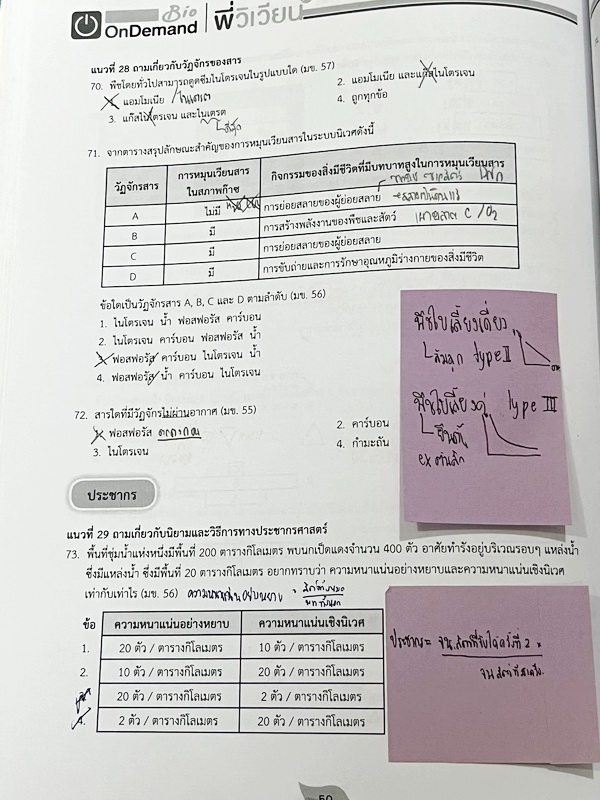 Bio
OnDemand พี่วิเวียน
แนวที่ 28 ถามเกี่ยวกับวัฏจักรของสาร
70. พืชโดยทั่วไปสามารถดูดซึมไนโตรเจนในรูปแบบใด (มข. 57)
1. แอมโมเนีย /ไนเตรต 2. แอมโมเนีย และแก๊สไนโตรเจน
3. แก๊สไนโตรเจน และไนเตรต 4. ถูกทุกข้อ
71. จากตารางสรุปลักษณะสำคัญของการหมุนเวียนสารในระบบนิเวศดังนี้
วัฏจักรสาร การหมุนเวียนสารในสภาพก๊าซ กิจกรรมของสิ่งมีชีวิตที่มีบทบาทสูงในการหมุนเวียนสาร
A ไม่มี การย่อยสลายของผู้ย่อยสลาย
B มี การสร้างพลังงานของพืชและสัตว์ C / O2
C มี การย่อยสลายของผู้ย่อยสลาย
D มี การขับถ่ายและการรักษาอุณหภูมิร่างกายของสิ่งมีชีวิต
ข้อใดเป็นวัฏจักรสาร A, B, C และ D ตามลำดับ (มข. 56)
1. ไนโตรเจน น้ำ ฟอสฟอรัส คาร์บอน
2. ไนโตรเจน คาร์บอน ฟอสฟอรัส น้ำ
3. ฟอสฟอรัส คาร์บอน ไนโตรเจน น้ำ
4. ฟอสฟอรัส น้ำ คาร์บอน ไนโตรเจน
พืชใบเลี้ยงเดี่ยว
type II
พืชใบเลี้ยงคู่ type III
ยืนต้น
ex
72. สารใดที่มีวัฏจักรไม่ผ่านอากาศ (มข. 55)
1. ฟอสฟอรัส ตกตะกอน 2. คาร์บอน
3. ไนโตรเจน 4. กำมะถัน
ประชากร
แนวที่ 29 ถามเกี่ยวกับนิยามและวิธีการทางประชากรศาสตร์
73. พื้นที่ชุ่มน้ำแห่งหนึ่งมีพื้นที่ 200 ตารางกิโลเมตร พบนกเป็ดแดงจำนวน 400 ตัว อาศัยทำรังอยู่บริเวณรอบๆ แหล่งน้ำ
ซึ่งมีแหล่งน้ำ ซึ่งมีพื้นที่ 20 ตารางกิโลเมตร อยากทราบว่า ความหนาแน่นอย่างหยาบและความหนาแน่นเชิงนิเวศ
เท่ากับเท่าไร (มข. 56) ความหนาแน่นอย่างหยาบ =
ข้อ ความหนาแน่นอย่างหยาบ ความหนาแน่นเชิงนิเวศ
1. 20 ตัว / ตารางกิโลเมตร 10 ตัว / ตารางกิโลเมตร
2. 10 ตัว / ตารางกิโลเมตร 20 ตัว / ตารางกิโลเมตร
3. 20 ตัว / ตารางกิโลเมตร 2 ตัว / ตารางกิโลเมตร
4. 2 ตัว / ตารางกิโลเมตร 20 ตัว / ตารางกิโลเมตร
ประชากร =
50